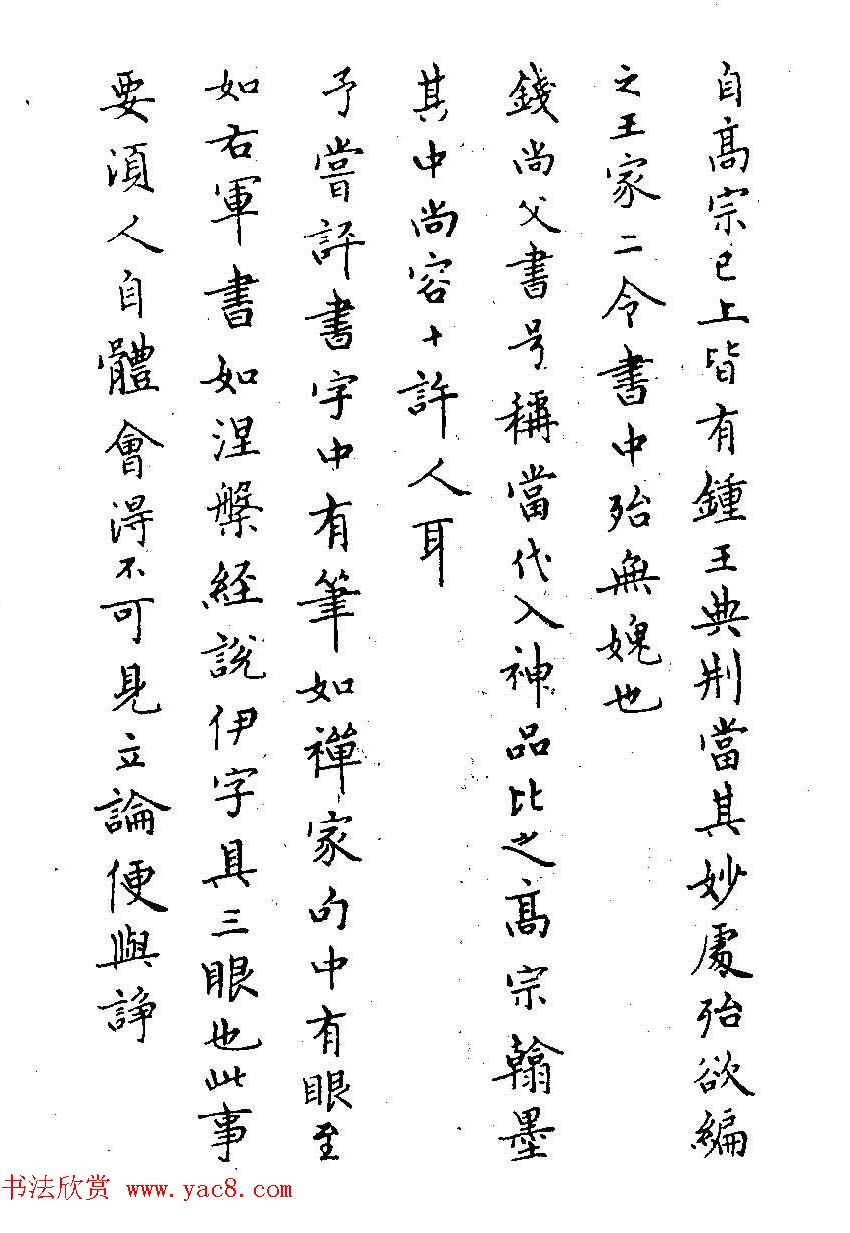 自髙宗已上皆有鍾王典刑當其妙處殆欲編
之王家二令書中殆無媿也
錢尚父書号稱當代入神品比之髙宗翰墨
其中尚容十許人耳
予嘗評書字中有筆如禪家句中有眼至
如右軍書如涅槃經說伊字具三眼也此事
要須人自體會得不可見立論便與諍
书法欣赏 www.yac8.com